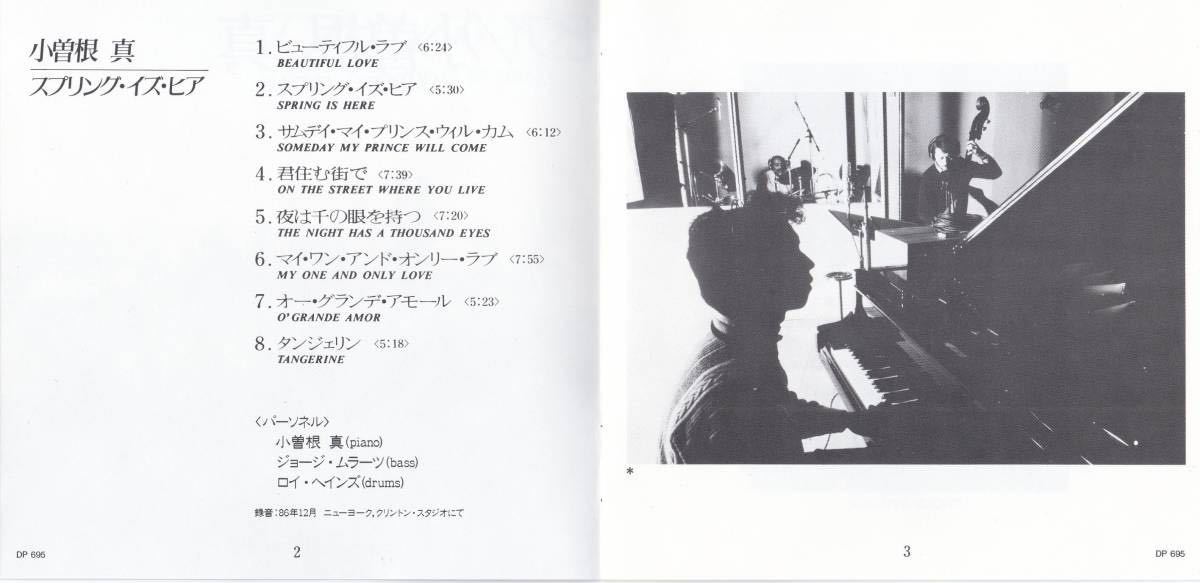 小曽根 真
スプリング・イズ・ヒア
1. ビューティフル・ラブ 〈6:24〉
BEAUTIFUL LOVE
2. スプリング・イズ・ヒア 〈5:30〉
SPRING IS HERE
3. サムデイ・マイ・プリンス・ウィル・カム 〈6:12〉
SOMEDAY MY PRINCE WILL COME
4. 君住む街で 〈7:39〉
ON THE STREET WHERE YOU LIVE
5. 夜は千の眼を持つ 〈7:20〉
THE NIGHT HAS A THOUSAND EYES
6. マイ・ワン・アンド・オンリー・ラブ 〈7:55〉
MY ONE AND ONLY LOVE
7. オー・グランデ・アモール 〈5:23〉
O' GRANDE AMOR
8. タンジェリン 〈5:18〉
TANGERINE
〈パーソネル〉
小曽根 真(piano)
ジョージ・ムラーツ(bass)
ロイ・ヘインズ(drums)
録音:86年12月 ニューヨーク,クリントン・スタジオにて
DP 695
2
*
3
DP 695